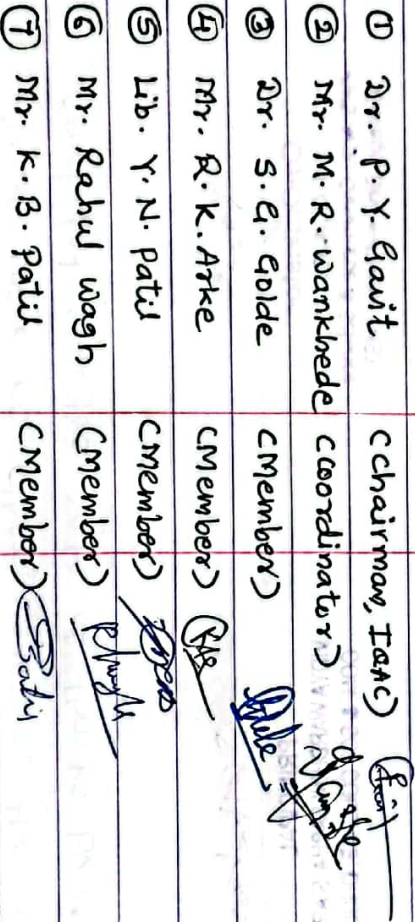 ① Dr. P. Y. Gavit (Chairman, IQAC)
② Mr. M. R. Wankhede (Coordinator)
③ Dr. S. G. Golde (Member)
④ Mr. R. K. Arke (Member)
⑤ Lib. Y. N. Patil (Member)
⑥ Mr. Rahul Wagh (Member)
⑦ Mr. K. B. Patil (Member)